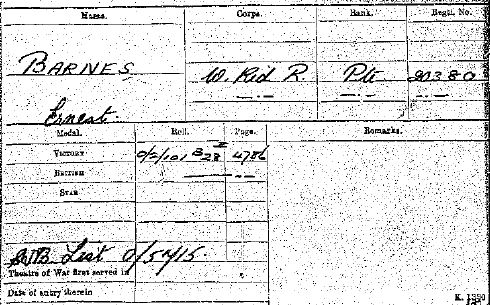 Name. Corps. Rank. Regtl. No.
BARNES W. Rid. R. Pte 20380
Ernest.
Medal. Roll. Page. Remarks.
VICTORY 0/2/101 B28 4786
BRITISH
STAR
SWB List 0/574/5.
Theatre of War first served in
Date of entry therein
K. 1380